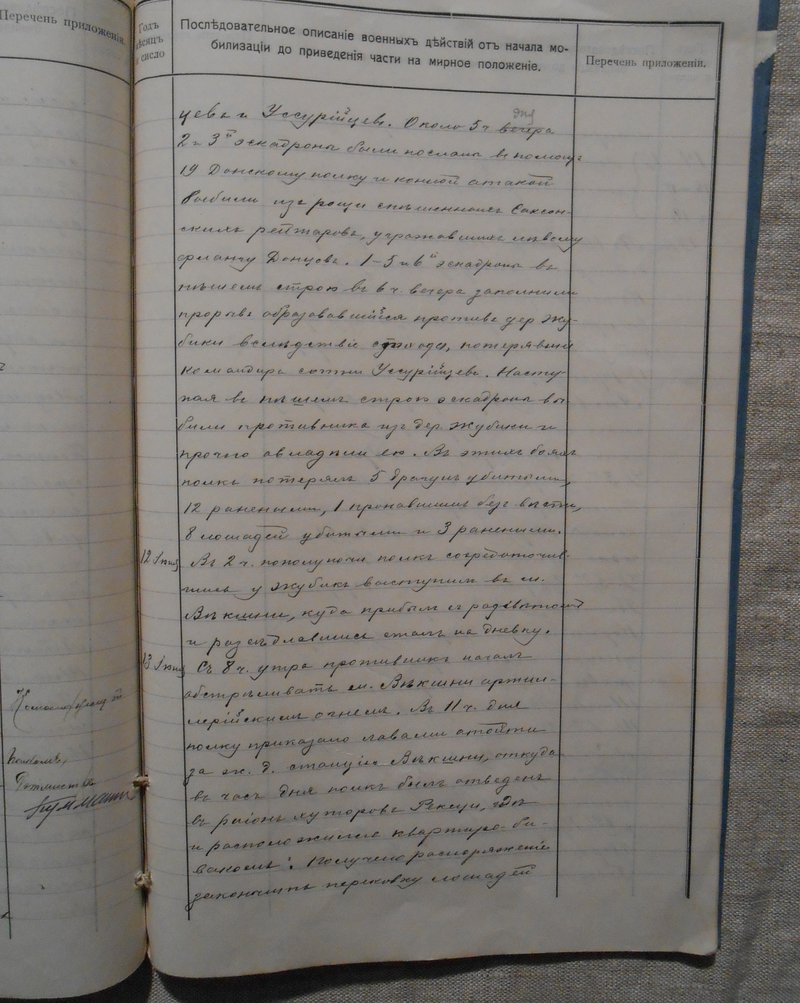 Перечень приложенiй.
Годъ
мѣсяцъ
и число
Послѣдовательное описанiе военныхъ дѣйствiй отъ начала мо-
билизацiи до приведенiя части на мирное положенiе.
Перечень приложенiй.
цевъ и Уссурiйцевъ. Около 5 ч. вечера
2 и 3й эскадроны были посланы въ помощь
19 Донскому полку и конной атакой
выбили изъ рощи спѣшенныхъ Саксон-
скихъ рейтаровъ, угрожавшихъ лѣвому
флангу Донцовъ. 1-5 и 6й эскадроны въ
пѣшемъ строю въ 6 ч. вечера заполнили
прорывъ образовавшiйся противъ дер. Жу-
бики вслѣдствiе отхода, потерявшей
командира сотни Уссурiйцевъ. Насту-
пая въ пѣшемъ строю эскадроны вы-
били противника изъ дер. Жубики и
прочно овладѣли ею. Въ этихъ бояхъ
полкъ потерялъ 5 драгунъ убитыми,
12 ранеными, 1 пропавшимъ безъ вѣсти,
8 лошадей убитыми и 3 ранеными.
12 Iюля Въ 2 ч. пополуночи полкъ сосредоточив-
шись у Жубикъ выступилъ въ м.
Вѣкшни, куда прибылъ съ разсвѣтомъ
и разсѣдлавшись сталъ на дневку.
13 Iюля Съ 8 ч. утра противникъ началъ
обстрѣливать м. Вѣкшни артил-
лерiйскимъ огнемъ. Въ 11 ч. дня
полку приказано лавами отойти
за ж. д. станцiю Вѣкшни, откуда
въ часъ дня полкъ былъ отведенъ
въ районъ хуторовъ
и расположенъ квартиро-би-
вакомъ. Получено распоряженiе
закончить перековку лошадей